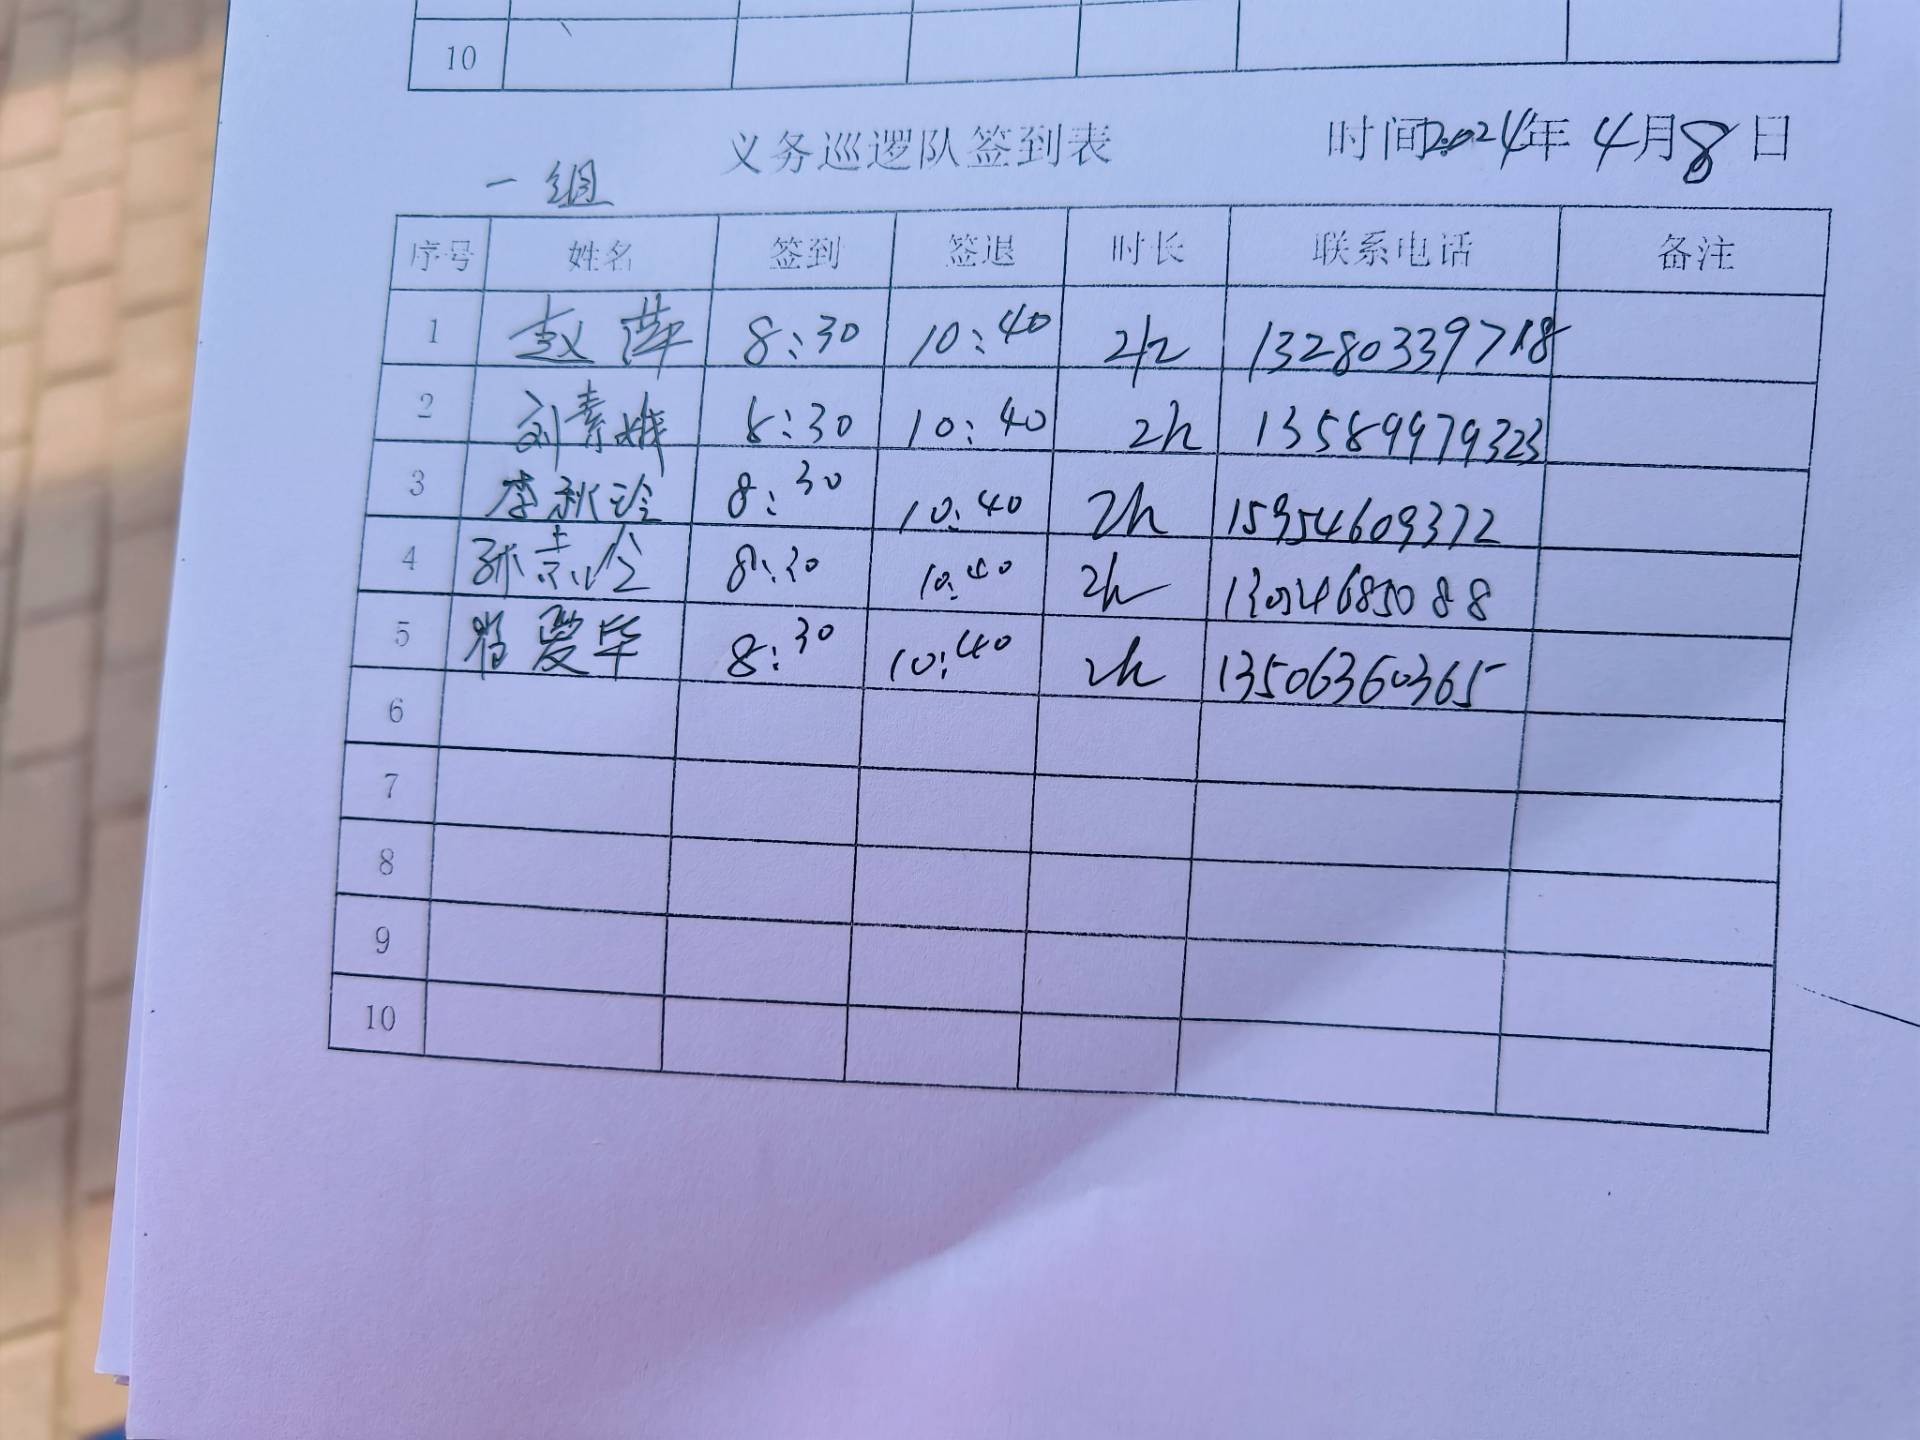 10
义务巡逻队签到表 时间2024年4月8日
一组
序号 姓名 签到 签退 时长 联系电话 备注
1 赵萍 8:30 10:40 2h 13280339718
2 刘素娥 8:30 10:40 2h 13589979323
3 李秋玲 8:30 10:40 2h 15954609372
4 8:30 10:40 2h
5 8:30 10:40 2h 13506360365
6
7
8
9
10